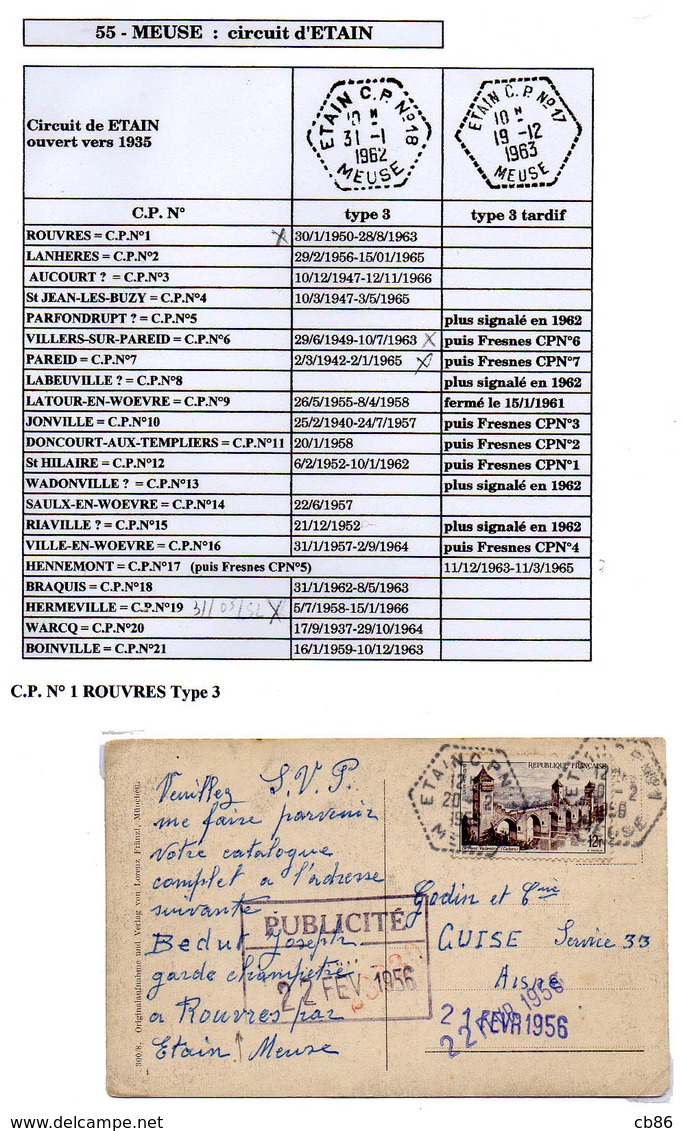 55 - MEUSE : circuit d'ETAIN
Circuit de ETAIN
ouvert vers 1935
ETAIN C.P. N°18
10 H
31 -1
1962
MEUSE
ETAIN C.P. N°17
10 H
19 -12
1963
MEUSE
C.P. N° type 3 type 3 tardif
ROUVRES = C.P.N°1 X 30/1/1950-28/8/1963
LANHERES = C.P.N°2 29/2/1956-15/01/1965
AUCOURT ? = C.P.N°3 10/12/1947-12/11/1966
St JEAN-LES-BUZY = C.P.N°4 10/3/1947-3/5/1965
PARFONDRUPT ? = C.P.N°5 plus signalé en 1962
VILLERS-SUR-PAREID = C.P.N°6 29/6/1949-10/7/1963 X puis Fresnes CPN°6
PAREID = C.P.N°7 2/3/1942-2/1/1965 X puis Fresnes CPN°7
LABEUVILLE ? = C.P.N°8 plus signalé en 1962
LATOUR-EN-WOEVRE = C.P.N°9 26/5/1955-8/4/1958 fermé le 15/1/1961
JONVILLE = C.P.N°10 25/2/1940-24/7/1957 puis Fresnes CPN°3
DONCOURT-AUX-TEMPLIERS = C.P.N°11 20/1/1958 puis Fresnes CPN°2
St HILAIRE = C.P.N°12 6/2/1952-10/1/1962 puis Fresnes CPN°1
WADONVILLE ? = C.P.N°13 plus signalé en 1962
SAULX-EN-WOEVRE = C.P.N°14 22/6/1957
RIAVILLE ? = C.P.N°15 21/12/1952 plus signalé en 1962
VILLE-EN-WOEVRE = C.P.N°16 31/1/1957-2/9/1964 puis Fresnes CPN°4
HENNEMONT = C.P.N°17 (puis Fresnes CPN°5) 11/12/1963-11/3/1965
BRAQUIS = C.P.N°18 31/1/1962-8/5/1963
HERMEVILLE = C.P.N°19 31/05/52 X 5/7/1958-15/1/1966
WARCQ = C.P.N°20 17/9/1937-29/10/1964
BOINVILLE = C.P.N°21 16/1/1959-10/12/1963
C.P. N° 1 ROUVRES Type 3
300/8. Originalaufnahme und Verlag von Lorenz Fränzl, München.
Veuillez S.V.P.
me faire parvenir
votre catalogue
complet a l'adresse
suivante
Bedut Joseph
garde champetre
a Rouvres par
Etain Meuse
PUBLICITÉ
22 FEV 1956
REPUBLIQUE FRANÇAISE
12F
ETAIN C.P. N°1
Godin et Cie
GUISE Service 33
Aisne
21 FEVR 1956
22 FEVR 1956
cb86